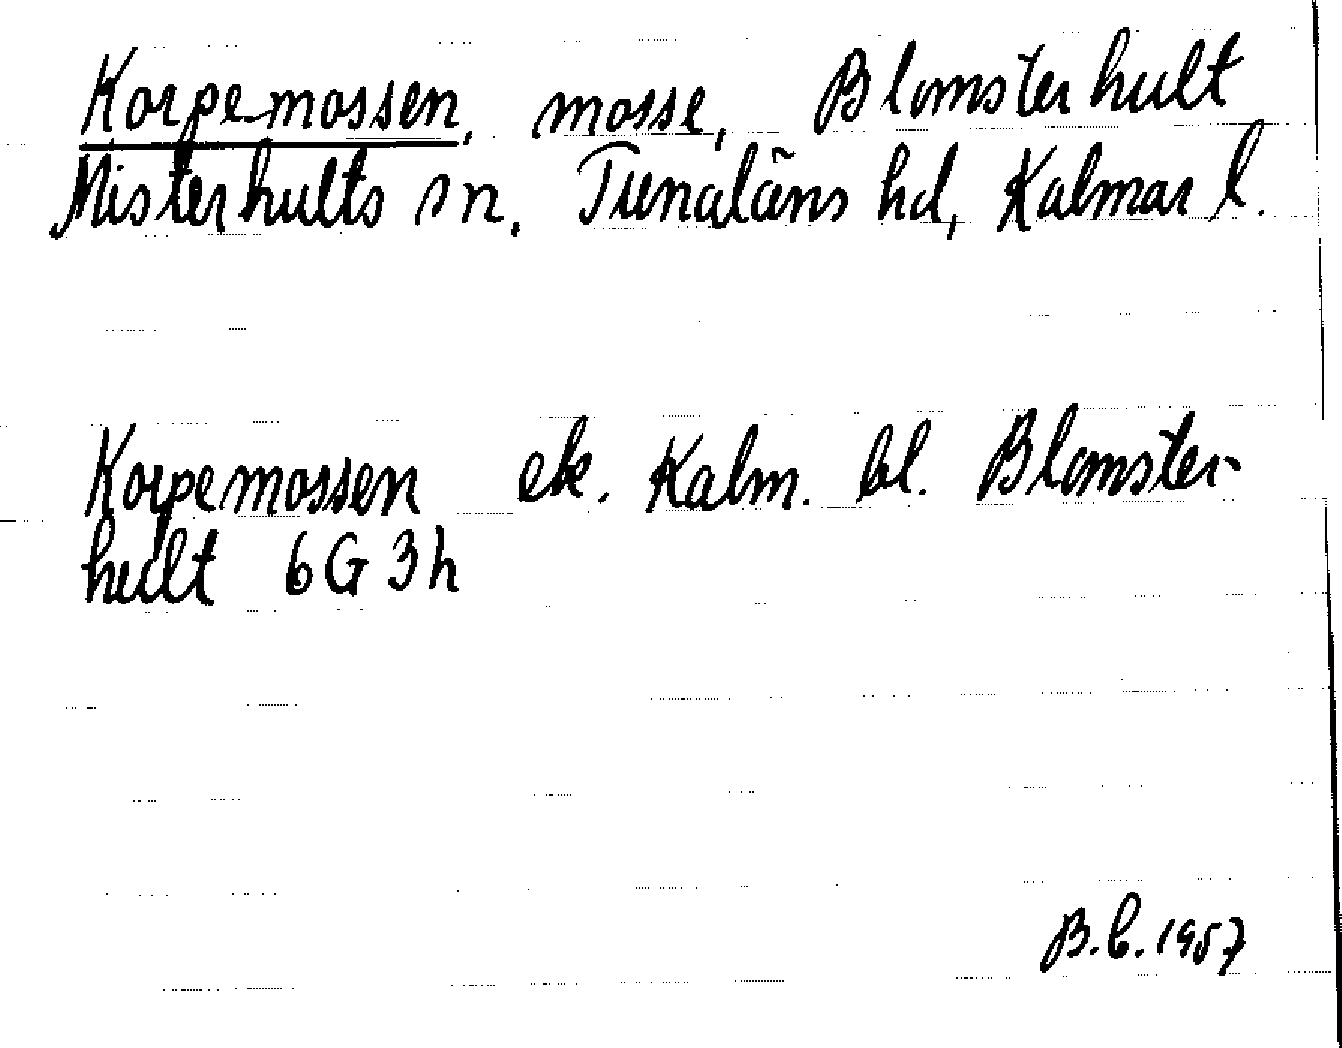 Korpemossen, mosse, Blomsterhult
Misterhults sn, Tunaläns hd, Kalmar l.
Korpemossen ek. Kalm. bl. Blomster-
hult 6G3h
B.b. 1957